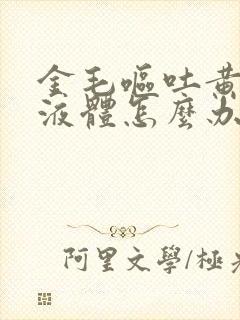 金毛嘔吐黃
液體怎麼办
阿里文學/極光